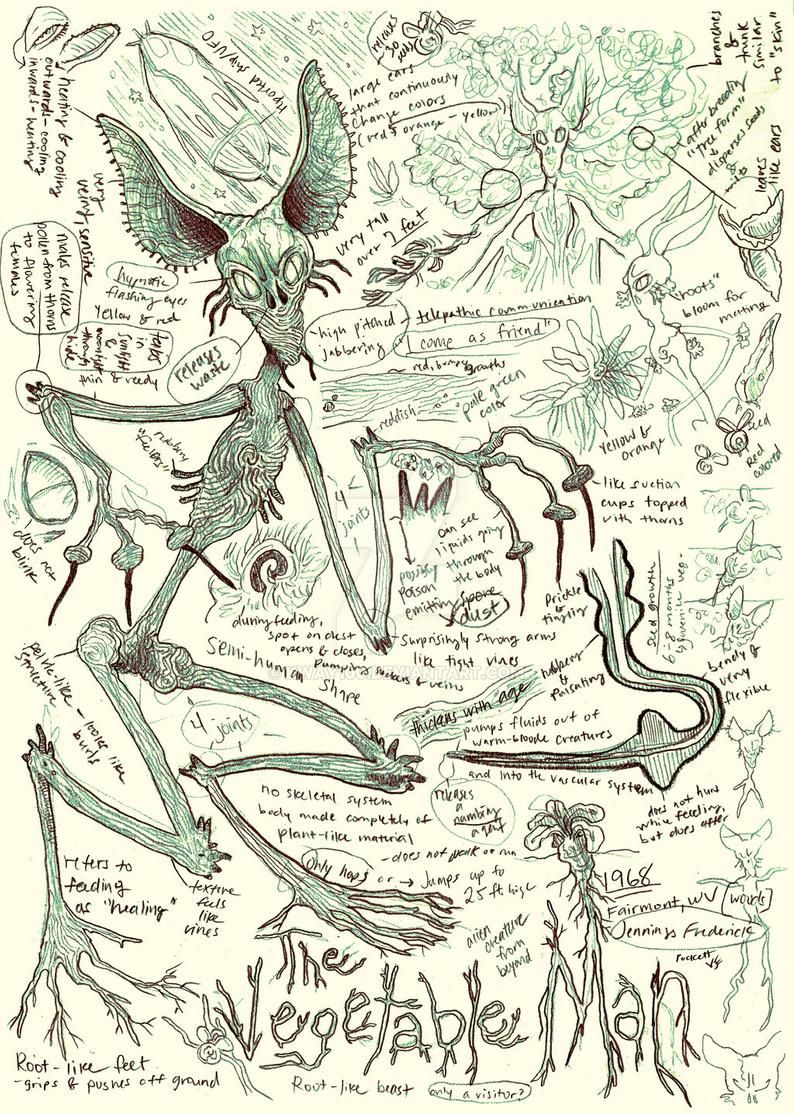 heating & cooling
outwards - cooling
inwards - heating
Aborted ship/UFO
releases
30
seeds
large ears
that continuously
change colors
(red & orange - yellow)
branches
&
trunk
similar
to "skin"
after breeding
"tree form"
& disperses seeds
leaves
like ears
very
veiny sensitive
males release
pollen from thorns
to flowering
females
hypnotic
flashing eyes
yellow & red
very tall
over 7 feet
takes
in
sunlight
&
through
thin & reedy
releases
waste
-high pitched
Jabbering
- telepathic communication
"I come as friend"
"roots"
bloom for
mating
red, bumps growths
reddish
pale green
color
yellow & orange
seed
Red
colored
does not
blink
4
joints
possibly
poison
emitting spore
dust
can see
liquids going
through
the body
-like suction
cups topped
with thorns
during feeding,
spot on chest
opens & closes
Semi-human
shape
Surprisingly strong arms
like tight vines
prickle
&
tingling
rubbery
&
pulsating
Seed growth
6-8 months
juvenile veg.
bendy &
very
flexible
pelvic-like
structure
- looks like
burls
4 joints
thickens with age
pumps fluids out of
warm-bloode creatures
and into the vascular system
releases
a
numbing
agent
does not hurt
while feeding,
but does after
no skeletal system
body made completely of
plant-like material
Only hops
-does not walk or run
or → Jumps up to
25 ft high
refers to
feeding
as "healing"
texture
feels
like
vines
alien creature
from
beyond
1968
Fairmont, WV [woods]
Jennings Frederick
The
Vegetable Man
Root-like feet
-grips & pushes off ground
Root-like beast
only a visitor?